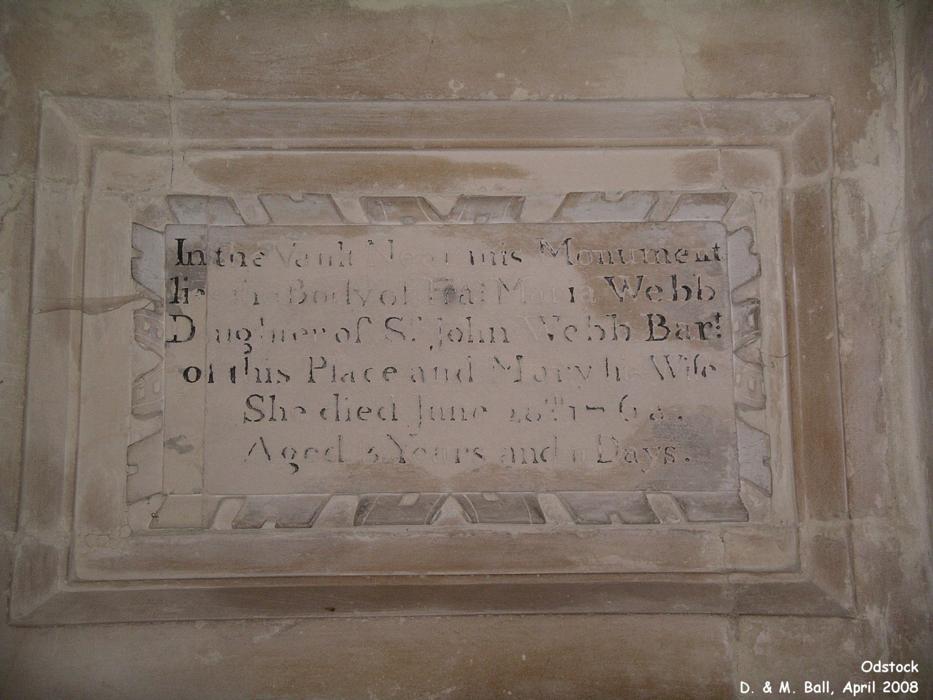 In the Vault Near this Monument
lie the Body of Maria Webb
Daughter of Sr. John Webb Bart.
of this Place and Mary his Wife
She died June
Aged Years and Days.
Odstock
D. & M. Ball, April 2008